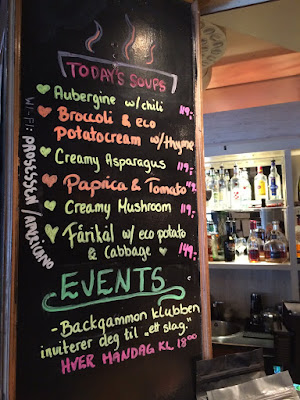 TODAY'S SOUPS
Aubergine w/chili 119,-
Broccoli & eco
potatocream w/thyme
Creamy Asparagus 119,-
Paprica & Tomato
Creamy Mushroom 119,-
Fårikål w/eco potato
& Cabbage 149,-
EVENTS
- Backgammon klubben
inviterer deg til "ett slag."
HVER MANDAG KL 18:00
WI-FI: